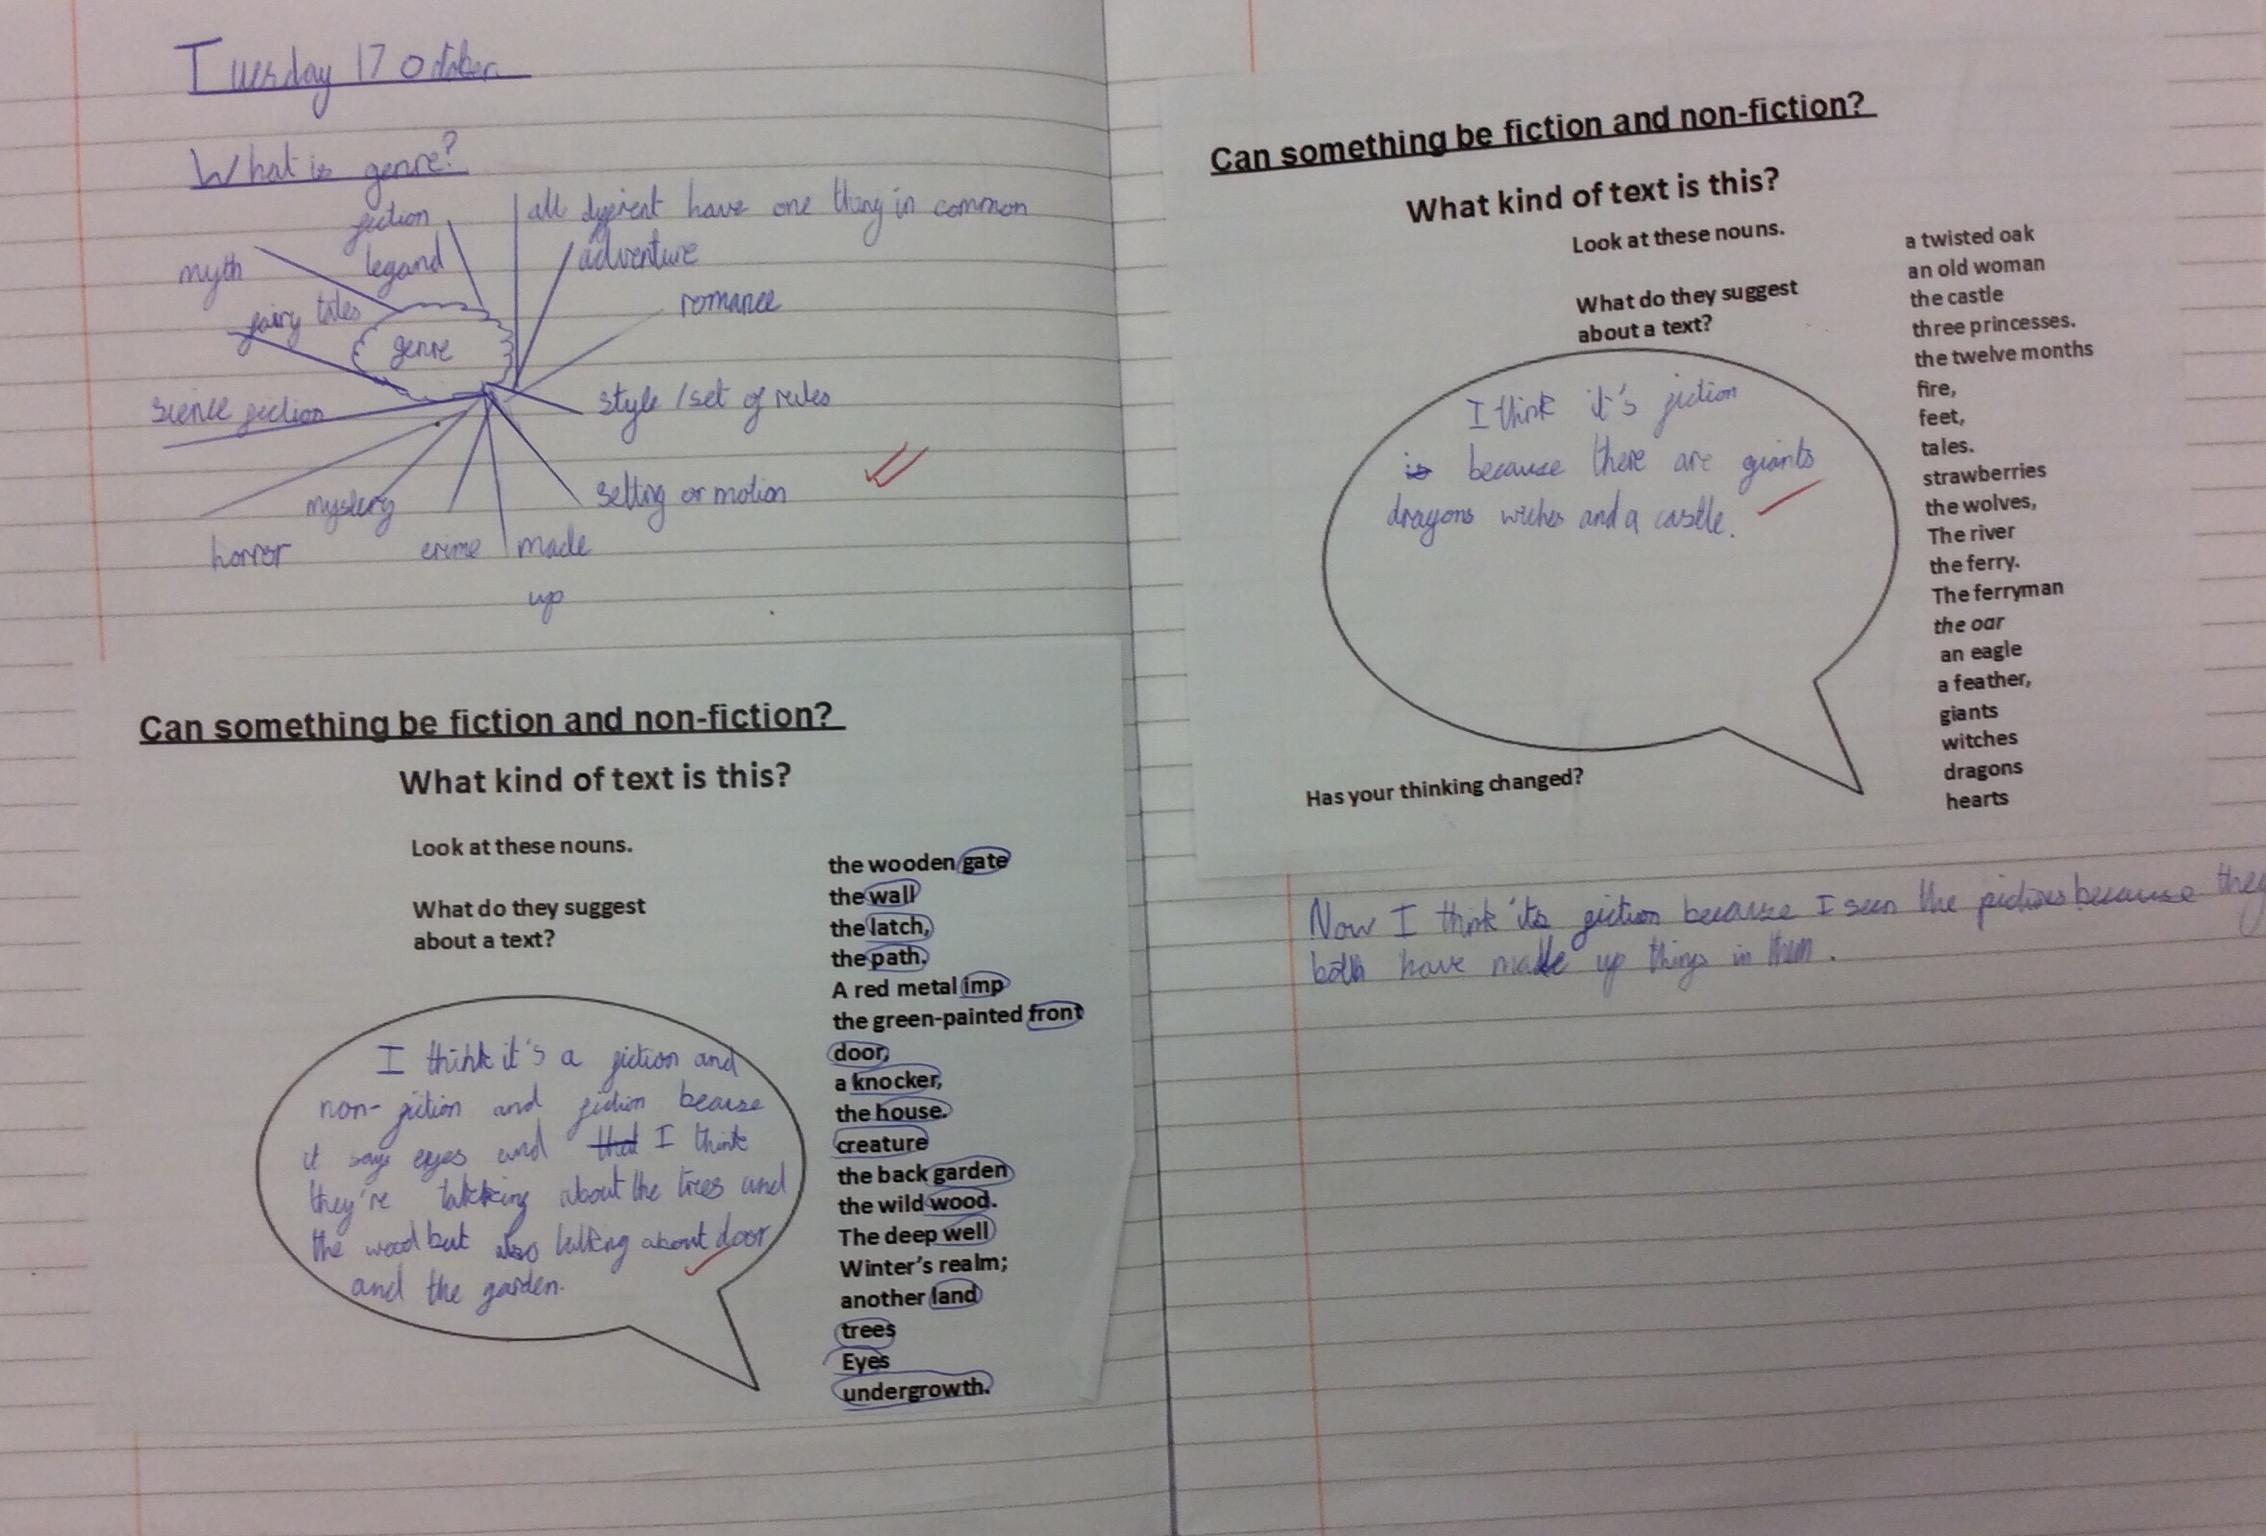 Tuesday 17 October
What is genre?
fiction
all dyfirent have one thing in common
myth
legand
adventure
fairy tales
romance
genre
sience fiction
style / set of rules
mystery
setting or motion
horror
crime
made
up
Can something be fiction and non-fiction?
What kind of text is this?
Look at these nouns.
What do they suggest
about a text?
I think it's a fiction and
non-fiction and fiction beause
it says eyes and that I think
they're talking about the trees and
the wood but also talking about door
and the garden.
the wooden gate
the wall
the latch,
the path.
A red metal imp
the green-painted front
door,
a knocker,
the house.
creature
the back garden
the wild wood.
The deep well
Winter's realm;
another land
trees
Eyes
undergrowth.
Can something be fiction and non-fiction?
What kind of text is this?
Look at these nouns.
What do they suggest
about a text?
I think it's fiction
is because there are giants
dragons wiches and a castle.
a twisted oak
an old woman
the castle
three princesses.
the twelve months
fire,
feet,
tales.
strawberries
the wolves,
The river
the ferry.
The ferryman
the oar
an eagle
a feather,
giants
witches
dragons
hearts
Has your thinking changed?
Now I think its fiction because I seen the because they
both have made up things in them.